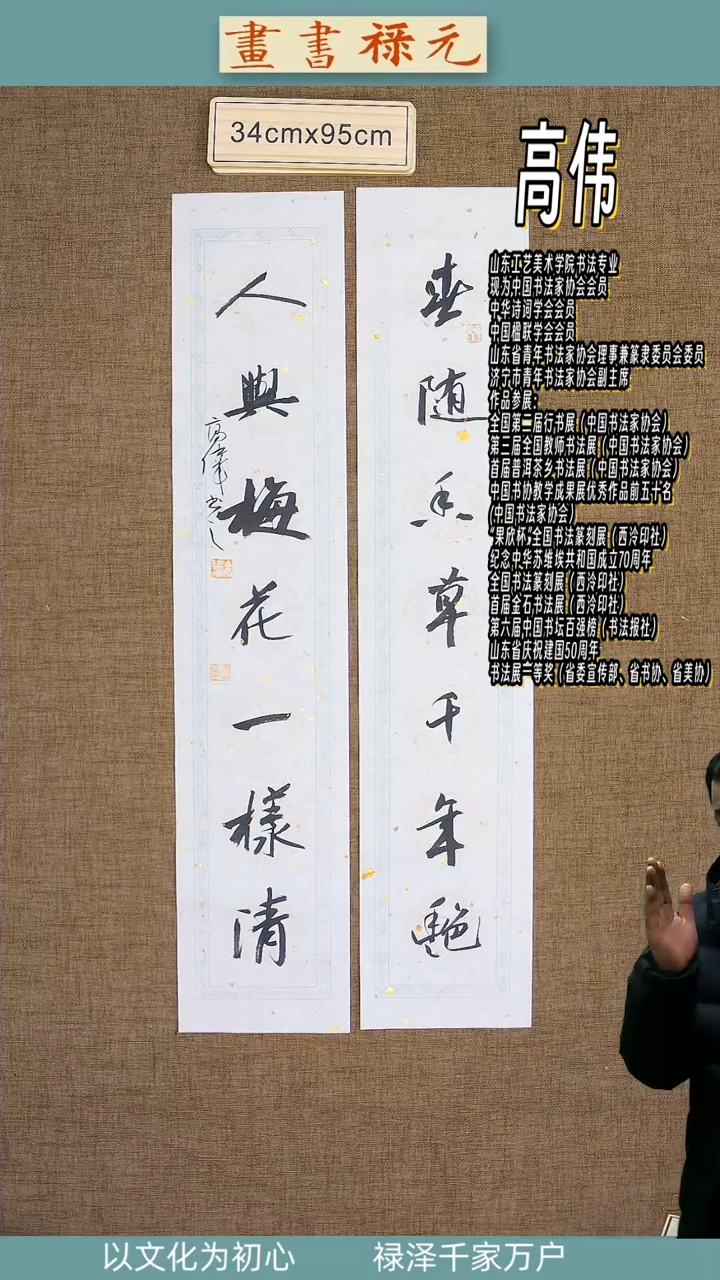 畫書祿元
34cmx95cm
高伟
山东工艺美术学院书法专业
现为中国书法家协会会员
中华诗词学会会员
中国楹联学会会员
山东省青年书法家协会理事兼篆隶委员会委员
济宁市青年书法家协会副主席
作品参展：
全国第二届行书展（中国书法家协会）
第三届全国教师书法展（中国书法家协会）
首届普洱茶乡书法展（中国书法家协会）
中国书协教学成果展优秀作品前五十名
(中国书法家协会）
“果欣杯”全国书法篆刻展（西泠印社）
纪念中华苏维埃共和国成立70周年
全国书法篆刻展（西泠印社）
首届金石书法展（西泠印社）
第六届中国书坛百强榜（书法报社）
山东省庆祝建国50周年
书法展一等奖（省委宣传部、省书协、省美协）
春随香草千年艷
人與梅花一樣清
高伟书之
以文化为初心 禄泽千家万户